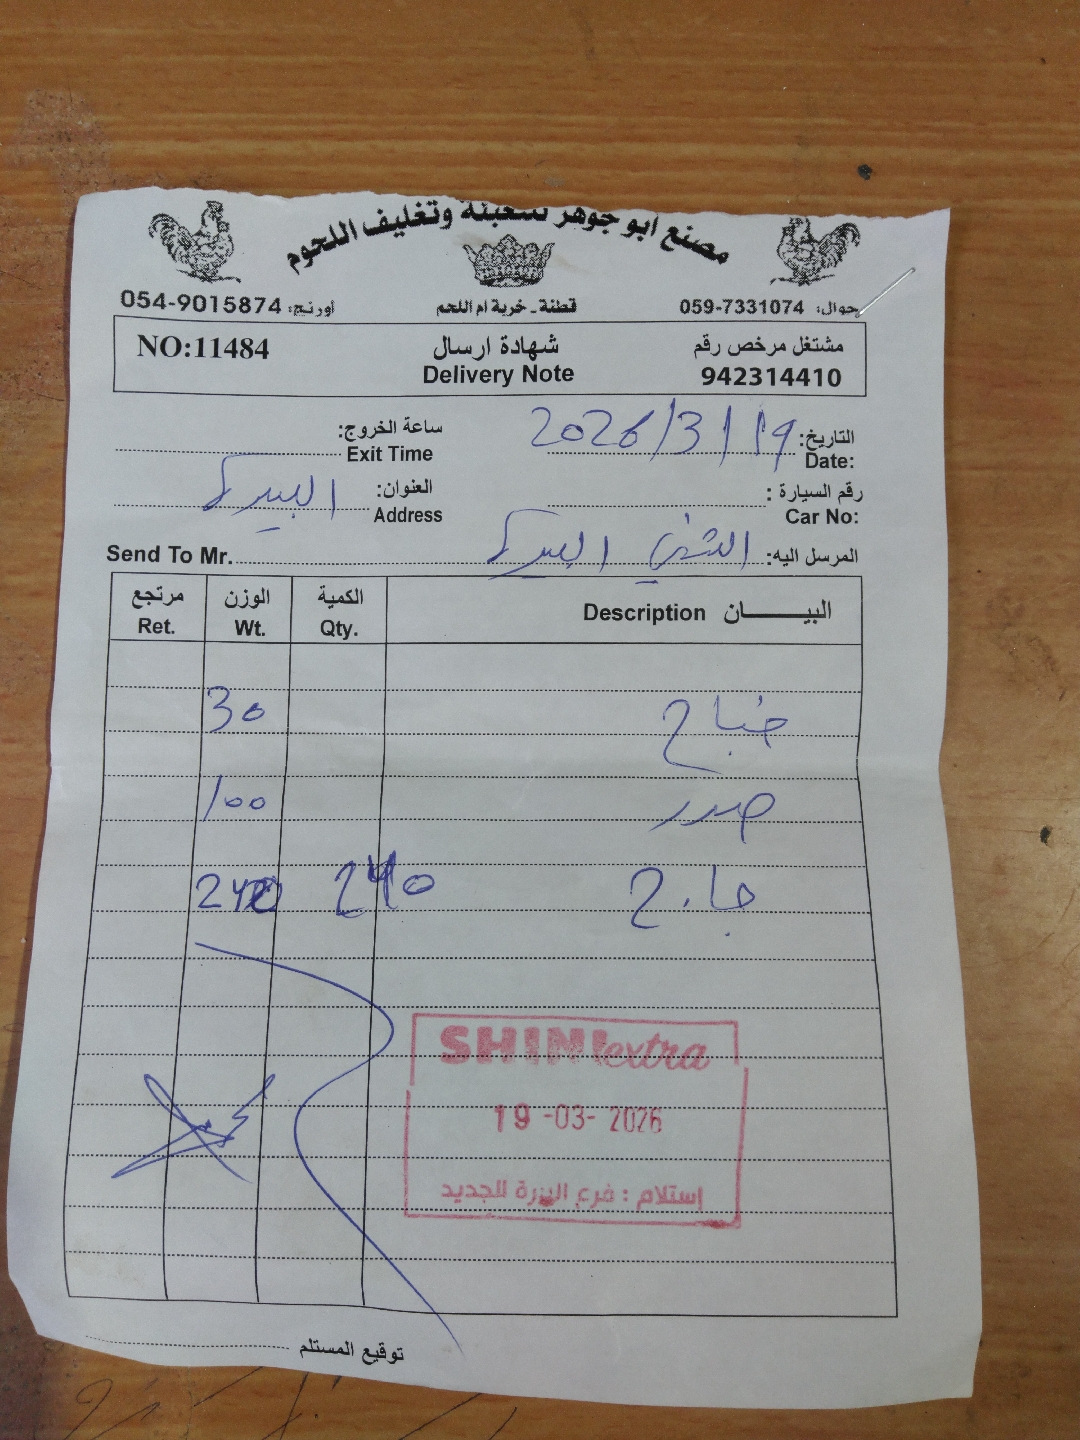 مصنع ابو جوهر لتعبئة وتغليف اللحوم
جوال: 059-7331074 قطنة - خربة ام اللحم اورنج: 054-9015874
مشتغل مرخص رقم شهادة ارسال NO:11484
942314410 Delivery Note
التاريخ: 2026/3/19 ساعة الخروج:
Date: Exit Time
رقم السيارة : العنوان: البيرة
Car No: Address
المرسل اليه: الشني البيرة Send To Mr.
البيـــــان Description الكمية Qty. الوزن Wt. مرتجع Ret.
جناح 30
صدر 100
240
SHINI extra
19 -03- 2026
إستلام : فرع البيرة الجديد
توقيع المستلم